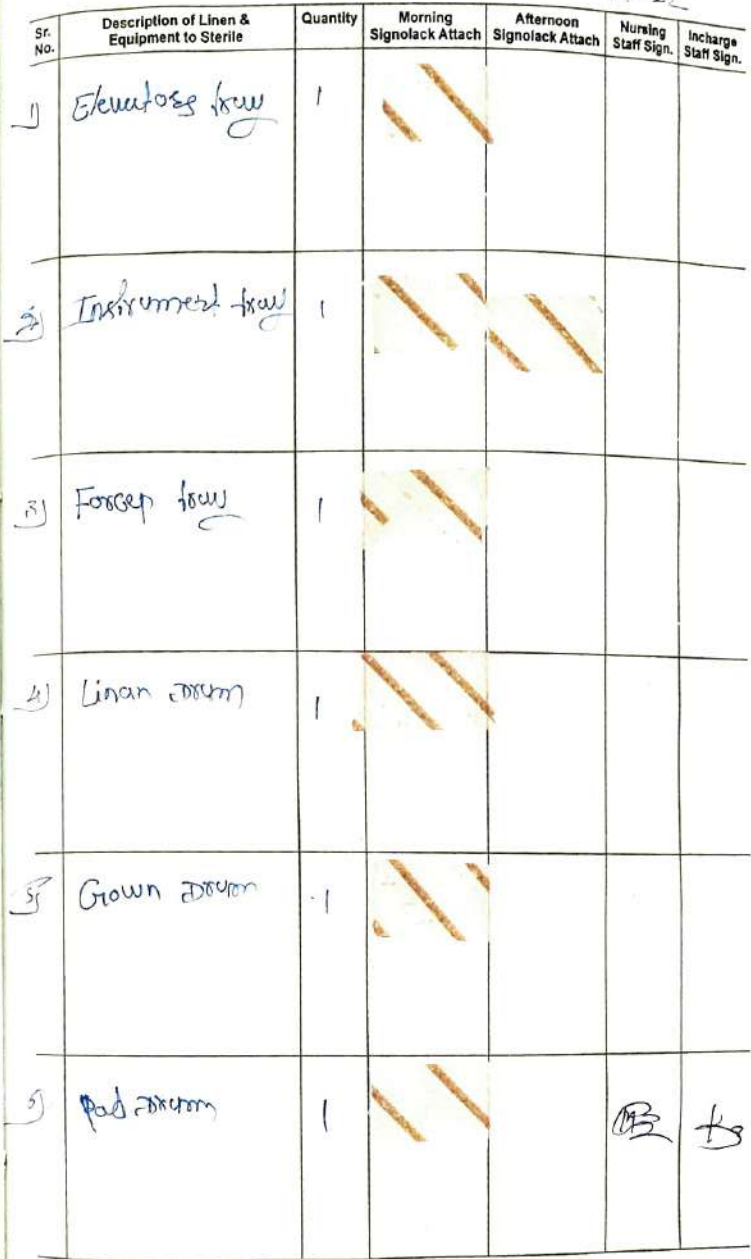 Sr. No. Description of Linen & Equipment to Sterile Quantity Morning Signolack Attach Afternoon Signolack Attach Nursing Staff Sign. Incharge Staff Sign.
1) Elevators tray 1
2) Instrument tray 1
3) Forcep tray 1
4) Linan Drum 1
5) Gown Drum 1
5) Pad Drum 1